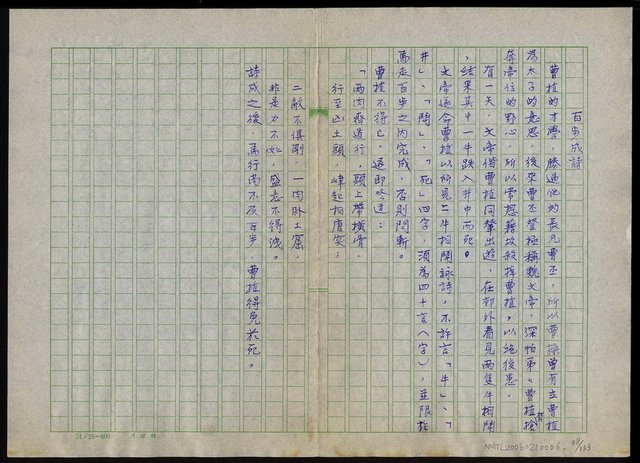 百步成詩
曹植的才學，勝過他的長兄曹丕，所以曹操曾有立曹植
為太子的意思，後來曹丕登極稱魏文帝，深怕弟弟曹植搶
奪帝位的野心，所以常想藉故殺掉曹植，以絕後患。
有一天，文帝偕曹植同輦出遊，在郊外看見兩隻牛相鬪
，結果其中一牛跌入井中而死。
文帝遂命曹植以所見二牛相鬪詠詩，不許言「牛」、「
井」、「鬪」、「死」四字，須為四十言（字），並限於
馬走百步之內完成，否則問斬。
曹植不得已，遂即吟道：
「兩肉齊道行，頭上帶橫骨，
行至凶土頭，峰起相唐突；
二敵不得剛，一肉臥土窟，
非是力不如，盛意不得洩。
詩成之後，馬行尚不及百步，曹植得免於死。
24×25=600
NMTL20060210006
48/133